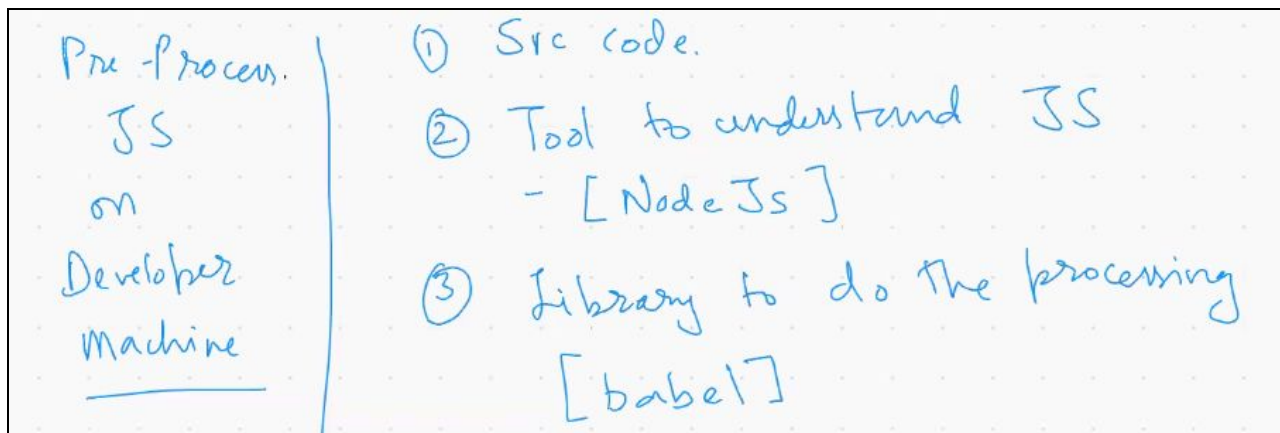 Pre-Process.
JS
on
Developer
Machine
① Src code.
② Tool to understand JS
- [NodeJs]
③ Library to do the processing
[babel]